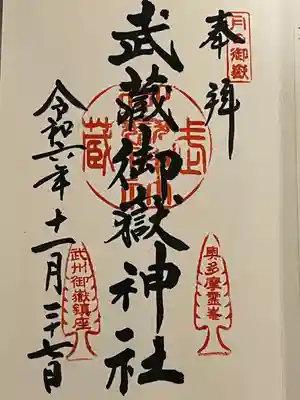 奉拝
月御嶽
武蔵御嶽神社
令和六年十一月二十七日
奥多摩霊峯
武州御嶽鎮座